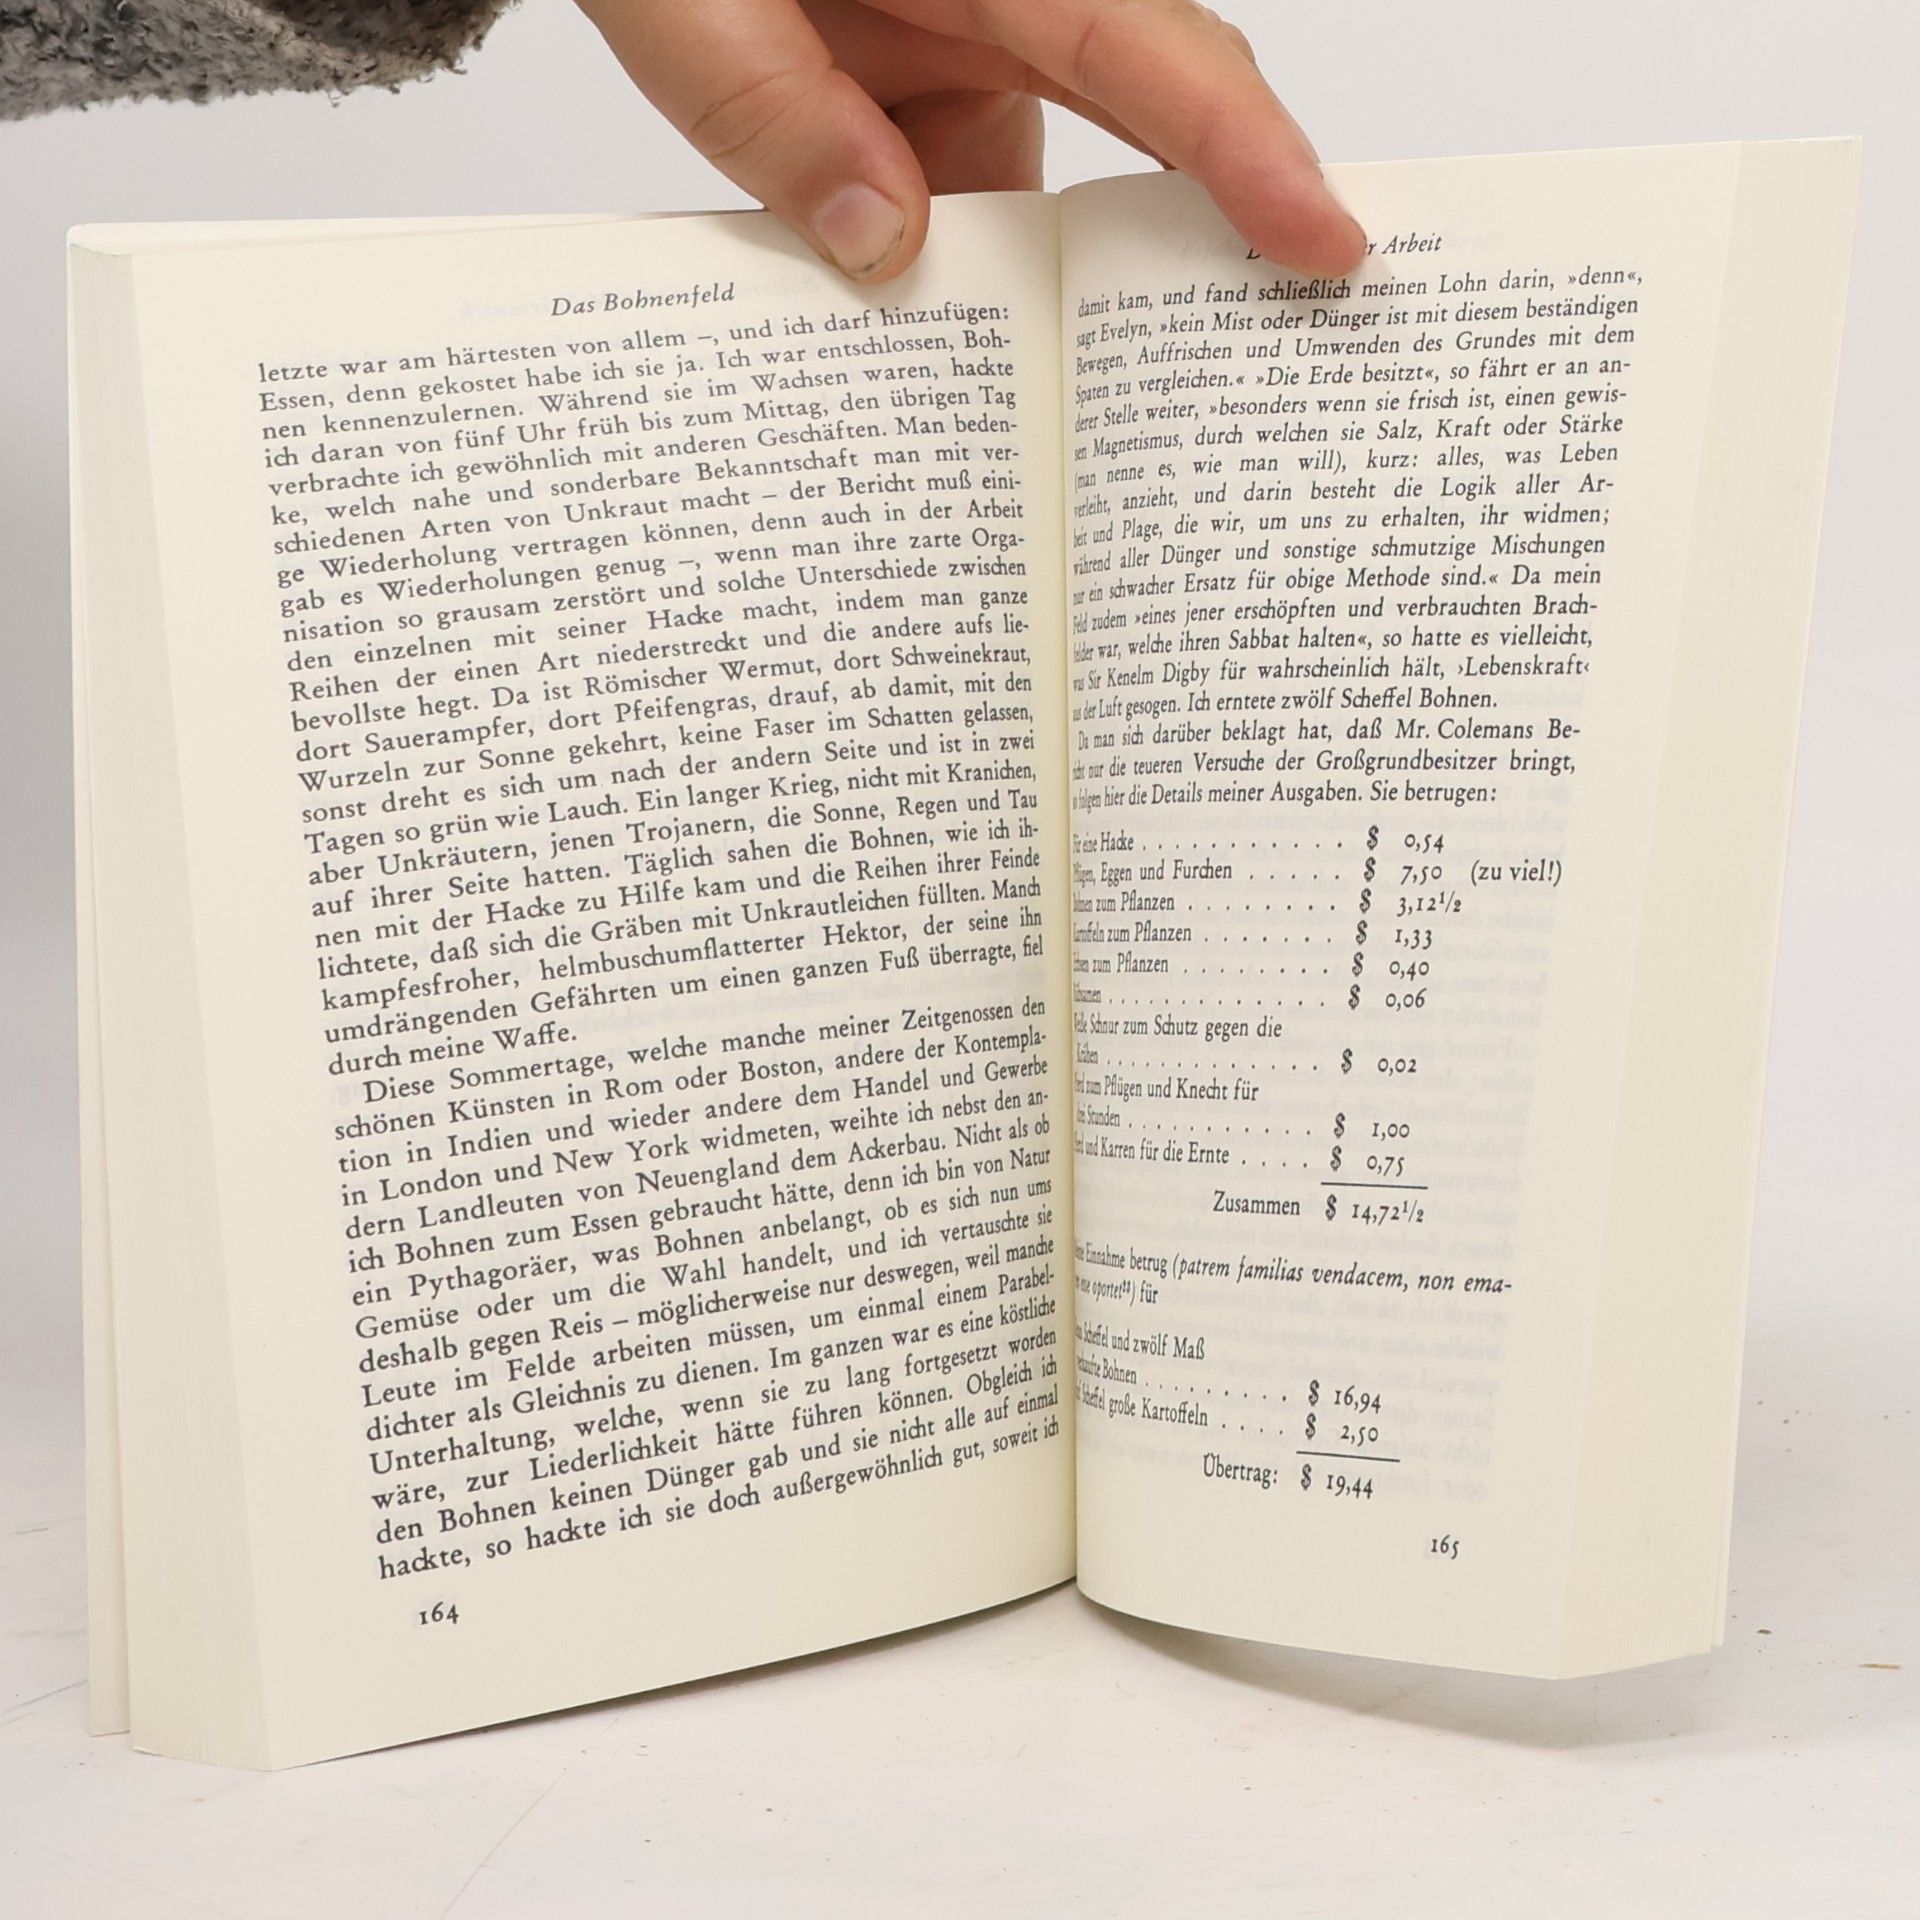 Das Bohnenfeld
letzte war am härtesten von allem –, und ich darf hinzufügen:
Essen, denn gekostet habe ich sie ja. Ich war entschlossen, Boh-
nen kennenzulernen. Während sie im Wachsen waren, hackte
ich daran von fünf Uhr früh bis zum Mittag, den übrigen Tag
verbrachte ich gewöhnlich mit anderen Geschäften. Man beden-
ke, welch nahe und sonderbare Bekanntschaft man mit ver-
schiedenen Arten von Unkraut macht – der Bericht muß eini-
ge Wiederholung vertragen können, denn auch in der Arbeit
gab es Wiederholungen genug –, wenn man ihre zarte Orga-
nisation so grausam zerstört und solche Unterschiede zwischen
den einzelnen mit seiner Hacke macht, indem man ganze
Reihen der einen Art niederstreckt und die andere aufs lie-
bevollste hegt. Da ist Römischer Wermut, dort Schweinekraut,
dort Sauerampfer, dort Pfeifengras, drauf, ab damit, mit den
Wurzeln zur Sonne gekehrt, keine Faser im Schatten gelassen,
sonst dreht es sich um nach der andern Seite und ist in zwei
Tagen so grün wie Lauch. Ein langer Krieg, nicht mit Kranichen,
aber Unkräutern, jenen Trojanern, die Sonne, Regen und Tau
auf ihrer Seite hatten. Täglich sahen die Bohnen, wie ich ih-
nen mit der Hacke zu Hilfe kam und die Reihen ihrer Feinde
lichtete, daß sich die Gräben mit Unkrautleichen füllten. Manch
kampfesfroher, helmbuschumflatterter Hektor, der seine ihn
umdrängenden Gefährten um einen ganzen Fuß überragte, fiel
durch meine Waffe.
Diese Sommertage, welche manche meiner Zeitgenossen den
schönen Künsten in Rom oder Boston, andere der Kontempla-
tion in Indien und wieder andere dem Handel und Gewerbe
in London und New York widmeten, weihte ich nebst den an-
dern Landleuten von Neuengland dem Ackerbau. Nicht als ob
ich Bohnen zum Essen gebraucht hätte, denn ich bin von Natur
ein Pythagoräer, was Bohnen anbelangt, ob es sich nun ums
Gemüse oder um die Wahl handelt, und ich vertauschte sie
deshalb gegen Reis – möglicherweise nur deswegen, weil manche
Leute im Felde arbeiten müssen, um einmal einem Parabel-
dichter als Gleichnis zu dienen. Im ganzen war es eine köstliche
Unterhaltung, welche, wenn sie zu lang fortgesetzt worden
wäre, zur Liederlichkeit hätte führen können. Obgleich ich
den Bohnen keinen Dünger gab und sie nicht alle auf einmal
hackte, so hackte ich sie doch außergewöhnlich gut, soweit ich
164
Arbeit
damit kam, und fand schließlich meinen Lohn darin, »denn«,
sagt Evelyn, »kein Mist oder Dünger ist mit diesem beständigen
Bewegen, Auffrischen und Umwenden des Grundes mit dem
Spaten zu vergleichen.« »Die Erde besitzt«, so fährt er an an-
derer Stelle weiter, »besonders wenn sie frisch ist, einen gewis-
sen Magnetismus, durch welchen sie Salz, Kraft oder Stärke
(man nenne es, wie man will), kurz: alles, was Leben
verleiht, anzieht, und darin besteht die Logik aller Ar-
beit und Plage, die wir, um uns zu erhalten, ihr widmen;
während aller Dünger und sonstige schmutzige Mischungen
nur ein schwacher Ersatz für obige Methode sind.« Da mein
Feld zudem »eines jener erschöpften und verbrauchten Brach-
felder war, welche ihren Sabbat halten«, so hatte es vielleicht,
was Sir Kenelm Digby für wahrscheinlich hält, ›Lebenskraft‹
aus der Luft gesogen. Ich erntete zwölf Scheffel Bohnen.
Da man sich darüber beklagt hat, daß Mr. Colemans Be-
richt nur die teueren Versuche der Großgrundbesitzer bringt,
so folgen hier die Details meiner Ausgaben. Sie betrugen:
Für eine Hacke . . . . . . . . . . . $ 0,54
Pflügen, Eggen und Furchen . . . . . $ 7,50 (zu viel!)
Bohnen zum Pflanzen . . . . . . . . $ 3,12½
Kartoffeln zum Pflanzen . . . . . . . $ 1,33
Erbsen zum Pflanzen . . . . . . . . $ 0,40
Rübsamen . . . . . . . . . . . . . $ 0,06
Weiße Schnur zum Schutz gegen die
Krähen . . . . . . . . . . . . . $ 0,02
Pferd zum Pflügen und Knecht für
drei Stunden . . . . . . . . . . . $ 1,00
Pferd und Karren für die Ernte . . . . $ 0,75
Zusammen $ 14,72½
Einnahme betrug (patrem familias vendacem, non ema-
cem esse oportet²³) für
Scheffel und zwölf Maß
verkaufte Bohnen . . . . . . . . . $ 16,94
Scheffel große Kartoffeln . . . . $ 2,50
Übertrag: $ 19,44
165